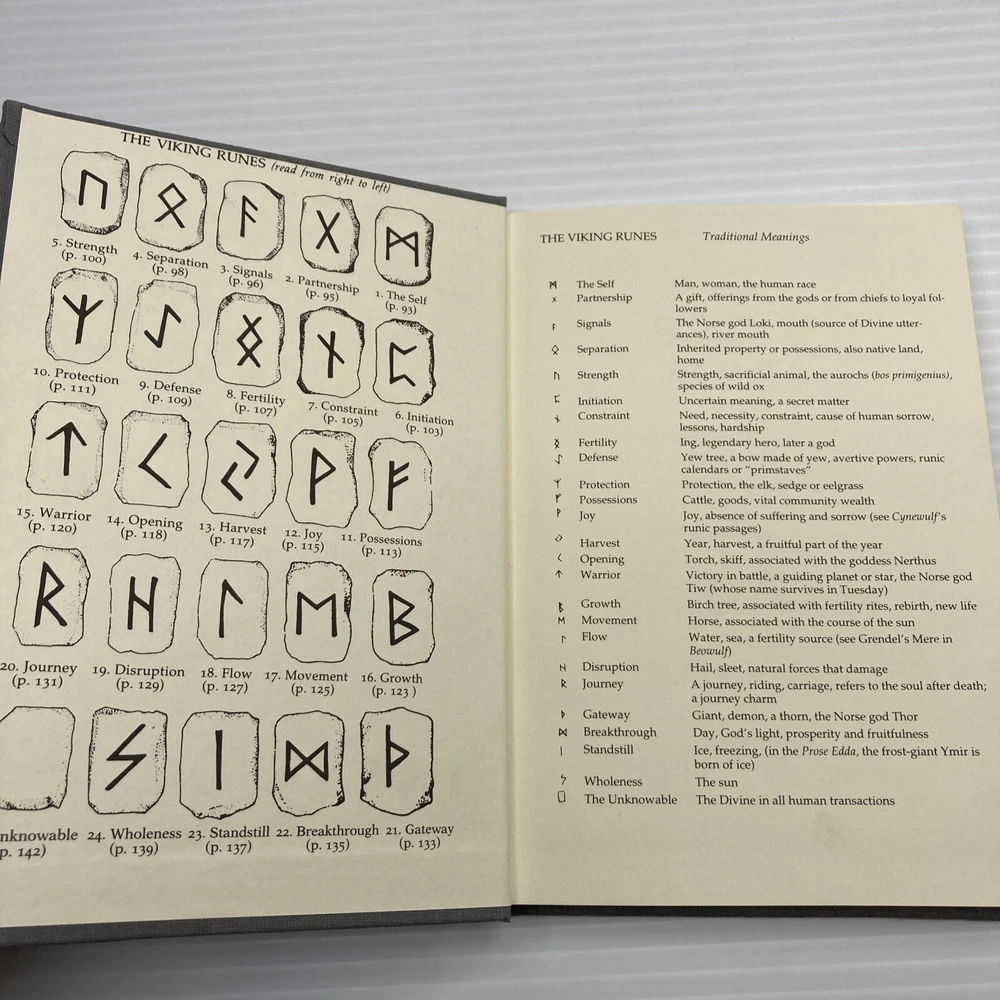 THE VIKING RUNES (read from right to left)
5. Strength 4. Separation 3. Signals 2. Partnership 1. The Self
(p. 100) (p. 98) (p. 96) (p. 95) (p. 93)
10. Protection 9. Defense 8. Fertility 7. Constraint 6. Initiation
(p. 111) (p. 109) (p. 107) (p. 105) (p. 103)
15. Warrior 14. Opening 13. Harvest 12. Joy 11. Possessions
(p. 120) (p. 118) (p. 117) (p. 115) (p. 113)
20. Journey 19. Disruption 18. Flow 17. Movement 16. Growth
(p. 131) (p. 129) (p. 127) (p. 125) (p. 123 )
nknowable 24. Wholeness 23. Standstill 22. Breakthrough 21. Gateway
p. 142) (p. 139) (p. 137) (p. 135) (p. 133)
THE VIKING RUNES Traditional Meanings
ᛗ The Self Man, woman, the human race
ᚷ Partnership A gift, offerings from the gods or from chiefs to loyal fol-
lowers
ᚨ Signals The Norse god Loki, mouth (source of Divine utter-
ances), river mouth
ᛟ Separation Inherited property or possessions, also native land,
home
ᚢ Strength Strength, sacrificial animal, the aurochs (bos primigenius),
species of wild ox
ᛈ Initiation Uncertain meaning, a secret matter
ᚾ Constraint Need, necessity, constraint, cause of human sorrow,
lessons, hardship
ᛝ Fertility Ing, legendary hero, later a god
ᛇ Defense Yew tree, a bow made of yew, avertive powers, runic
calendars or “primstaves”
ᛉ Protection Protection, the elk, sedge or eelgrass
ᚠ Possessions Cattle, goods, vital community wealth
ᚹ Joy Joy, absence of suffering and sorrow (see Cynewulf’s
runic passages)
ᛃ Harvest Year, harvest, a fruitful part of the year
ᚲ Opening Torch, skiff, associated with the goddess Nerthus
ᛏ Warrior Victory in battle, a guiding planet or star, the Norse god
Tiw (whose name survives in Tuesday)
ᛒ Growth Birch tree, associated with fertility rites, rebirth, new life
ᛖ Movement Horse, associated with the course of the sun
ᛚ Flow Water, sea, a fertility source (see Grendel’s Mere in
Beowulf)
ᚺ Disruption Hail, sleet, natural forces that damage
ᚱ Journey A journey, riding, carriage, refers to the soul after death;
a journey charm
ᚦ Gateway Giant, demon, a thorn, the Norse god Thor
ᛞ Breakthrough Day, God’s light, prosperity and fruitfulness
ᛁ Standstill Ice, freezing, (in the Prose Edda, the frost-giant Ymir is
born of ice)
ᛋ Wholeness The sun
The Unknowable The Divine in all human transactions